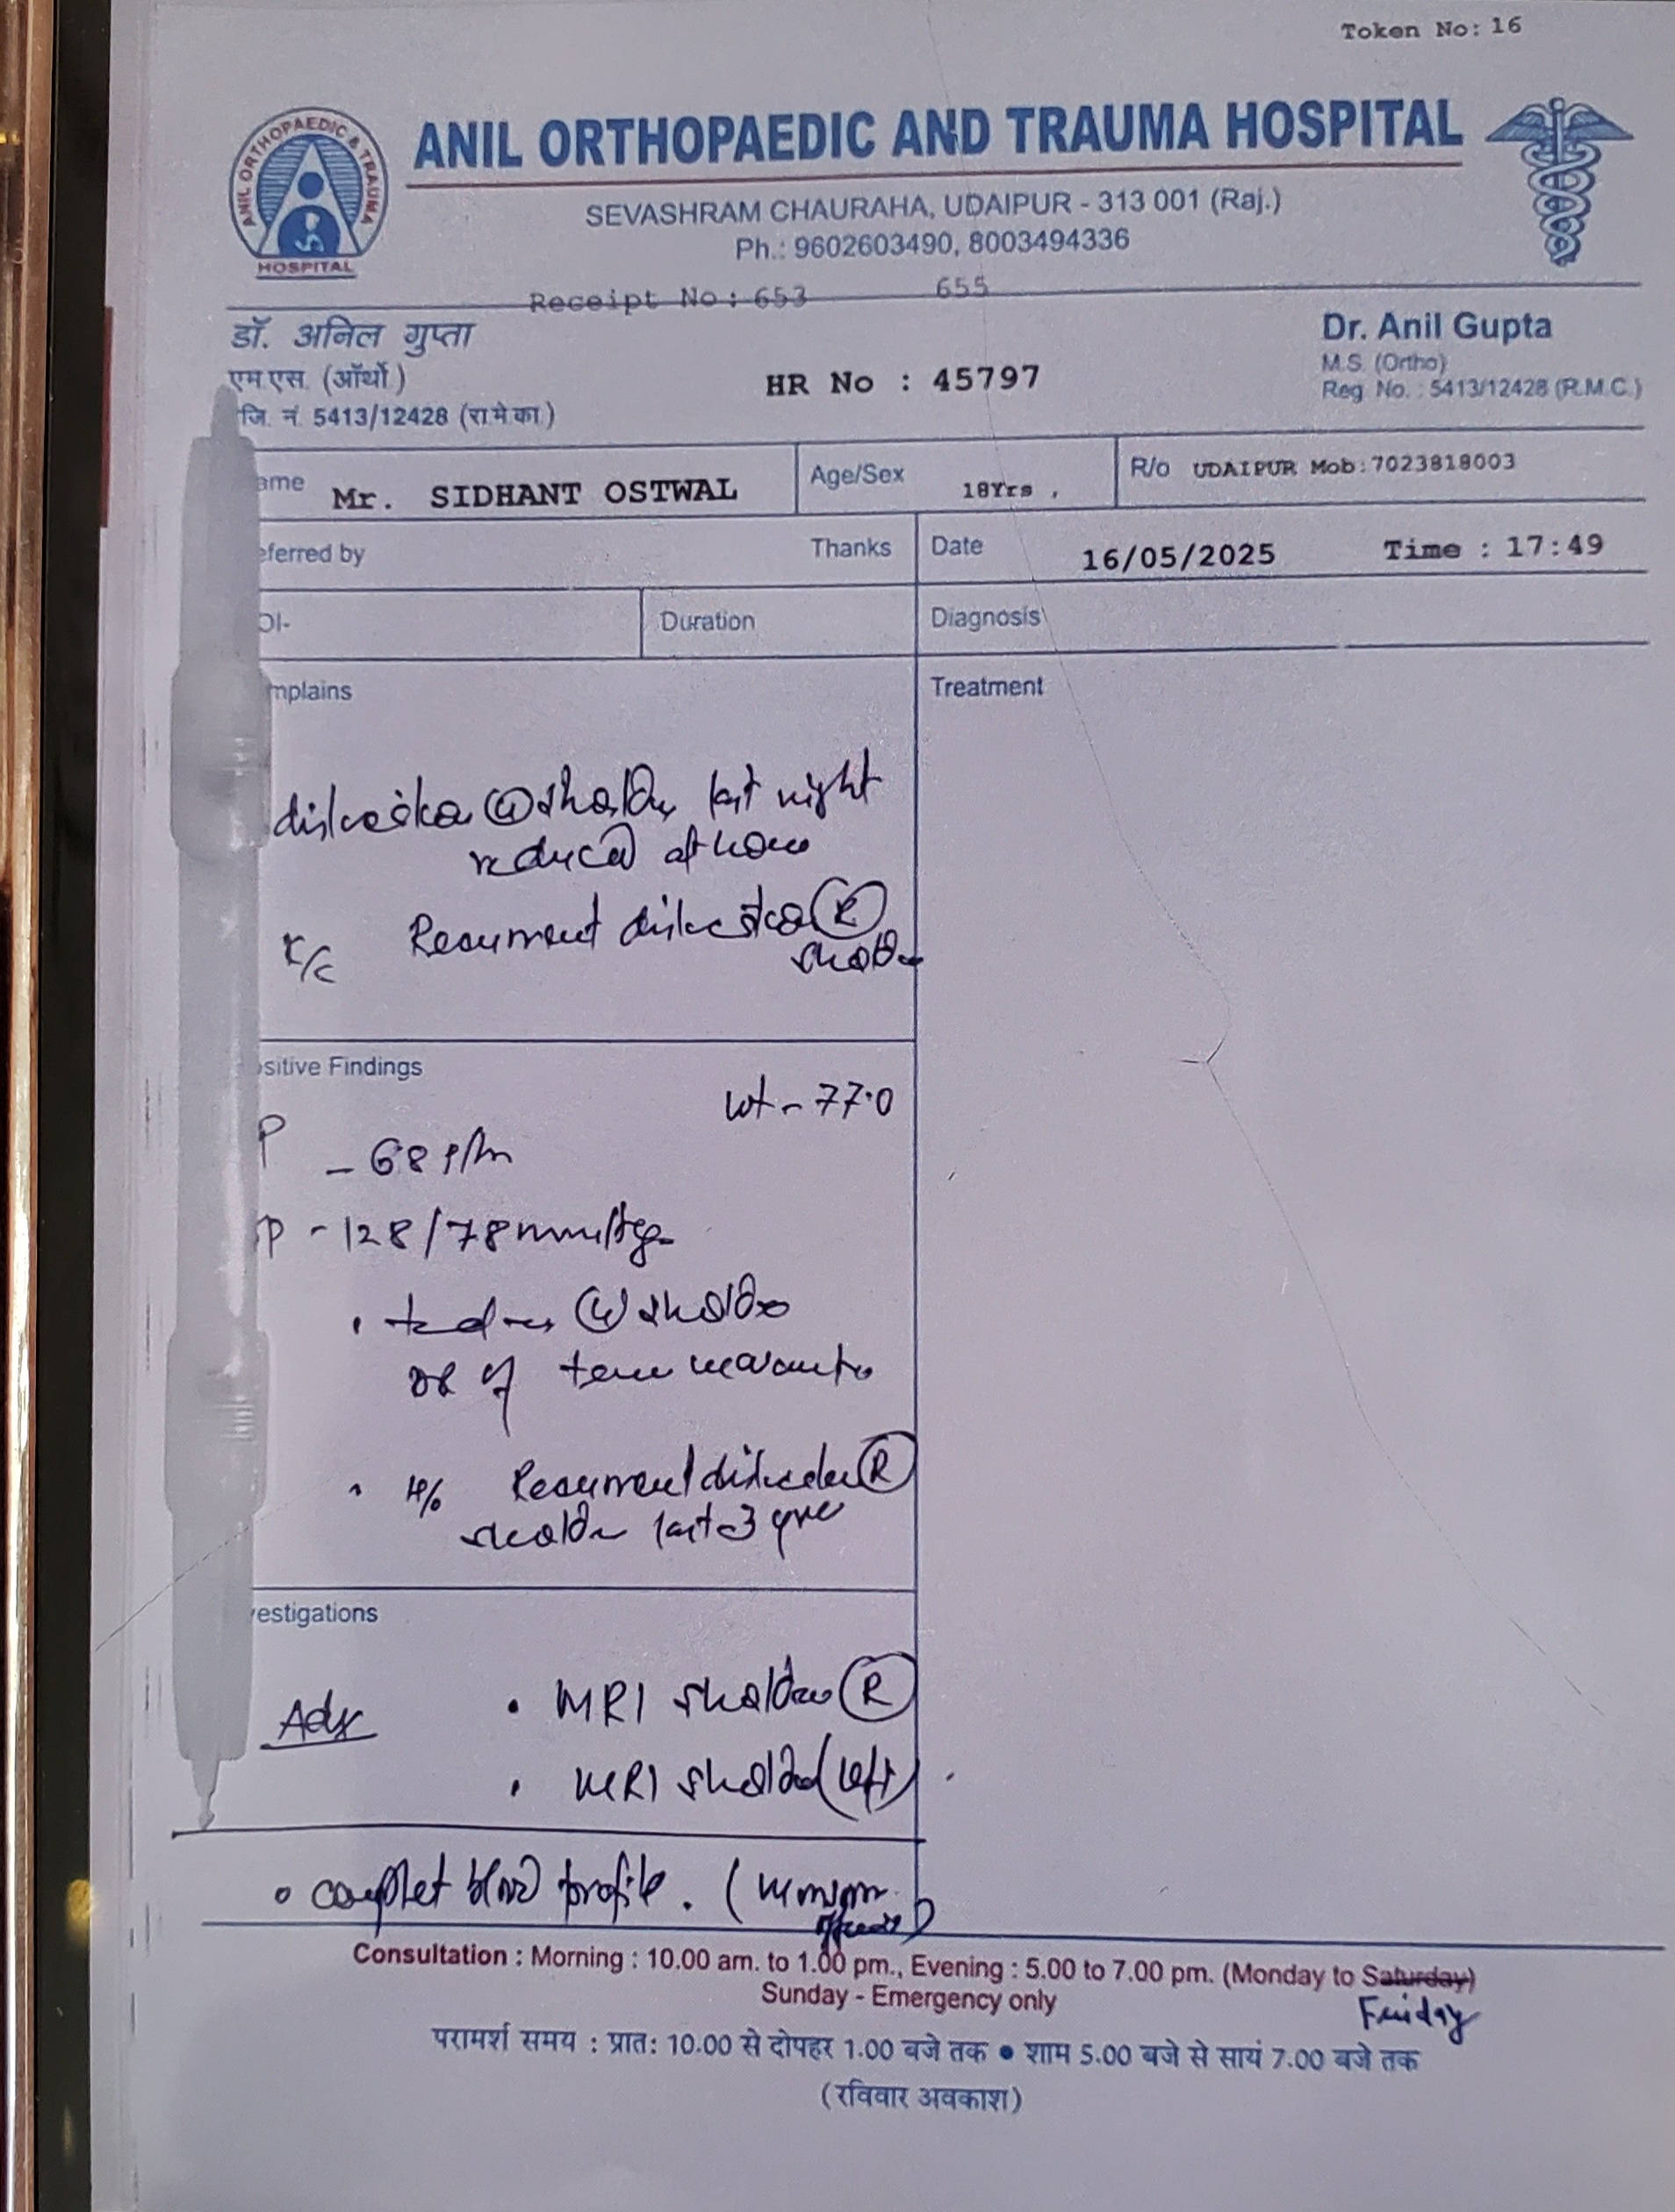 Token No: 16
ANIL ORTHOPAEDIC & TRAUMA
HOSPITAL
ANIL ORTHOPAEDIC AND TRAUMA HOSPITAL
SEVASHRAM CHAURAHA, UDAIPUR - 313 001 (Raj.)
Ph.: 9602603490, 8003494336
Receipt No: 653 655
डॉ. अनिल गुप्ता
एम.एस. (ऑर्थो)
जि. नं. 5413/12428 (रा.मे.का.)
HR No : 45797
Dr. Anil Gupta
M.S. (Ortho)
Reg. No. : 5413/12428 (R.M.C.)
ame Mr. SIDHANT OSTWAL
Age/Sex 18Yrs ,
R/o UDAIPUR Mob:7023818003
eferred by Thanks
Date 16/05/2025 Time : 17:49
OI-
Duration
Diagnosis
mplains
Treatment
dislocation (L) shoulder last night
reduced at home
K/C Recurrent dislocation (R)
shoulder
sitive Findings
wt - 77.0
P - 68 P/m
P - 128/78 mmHg
(L) shoulder
H/o Recurrent dislocation (R)
shoulder last 3
vestigations
Adv
• MRI shoulder (R)
• MRI shoulder (left)
• complet blood profile. (
Consultation : Morning : 10.00 am. to 1.00 pm., Evening : 5.00 to 7.00 pm. (Monday to Saturday)
Friday
Sunday - Emergency only
परामर्श समय : प्रात: 10.00 से दोपहर 1.00 बजे तक ● शाम 5.00 बजे से सायं 7.00 बजे तक
(रविवार अवकाश)